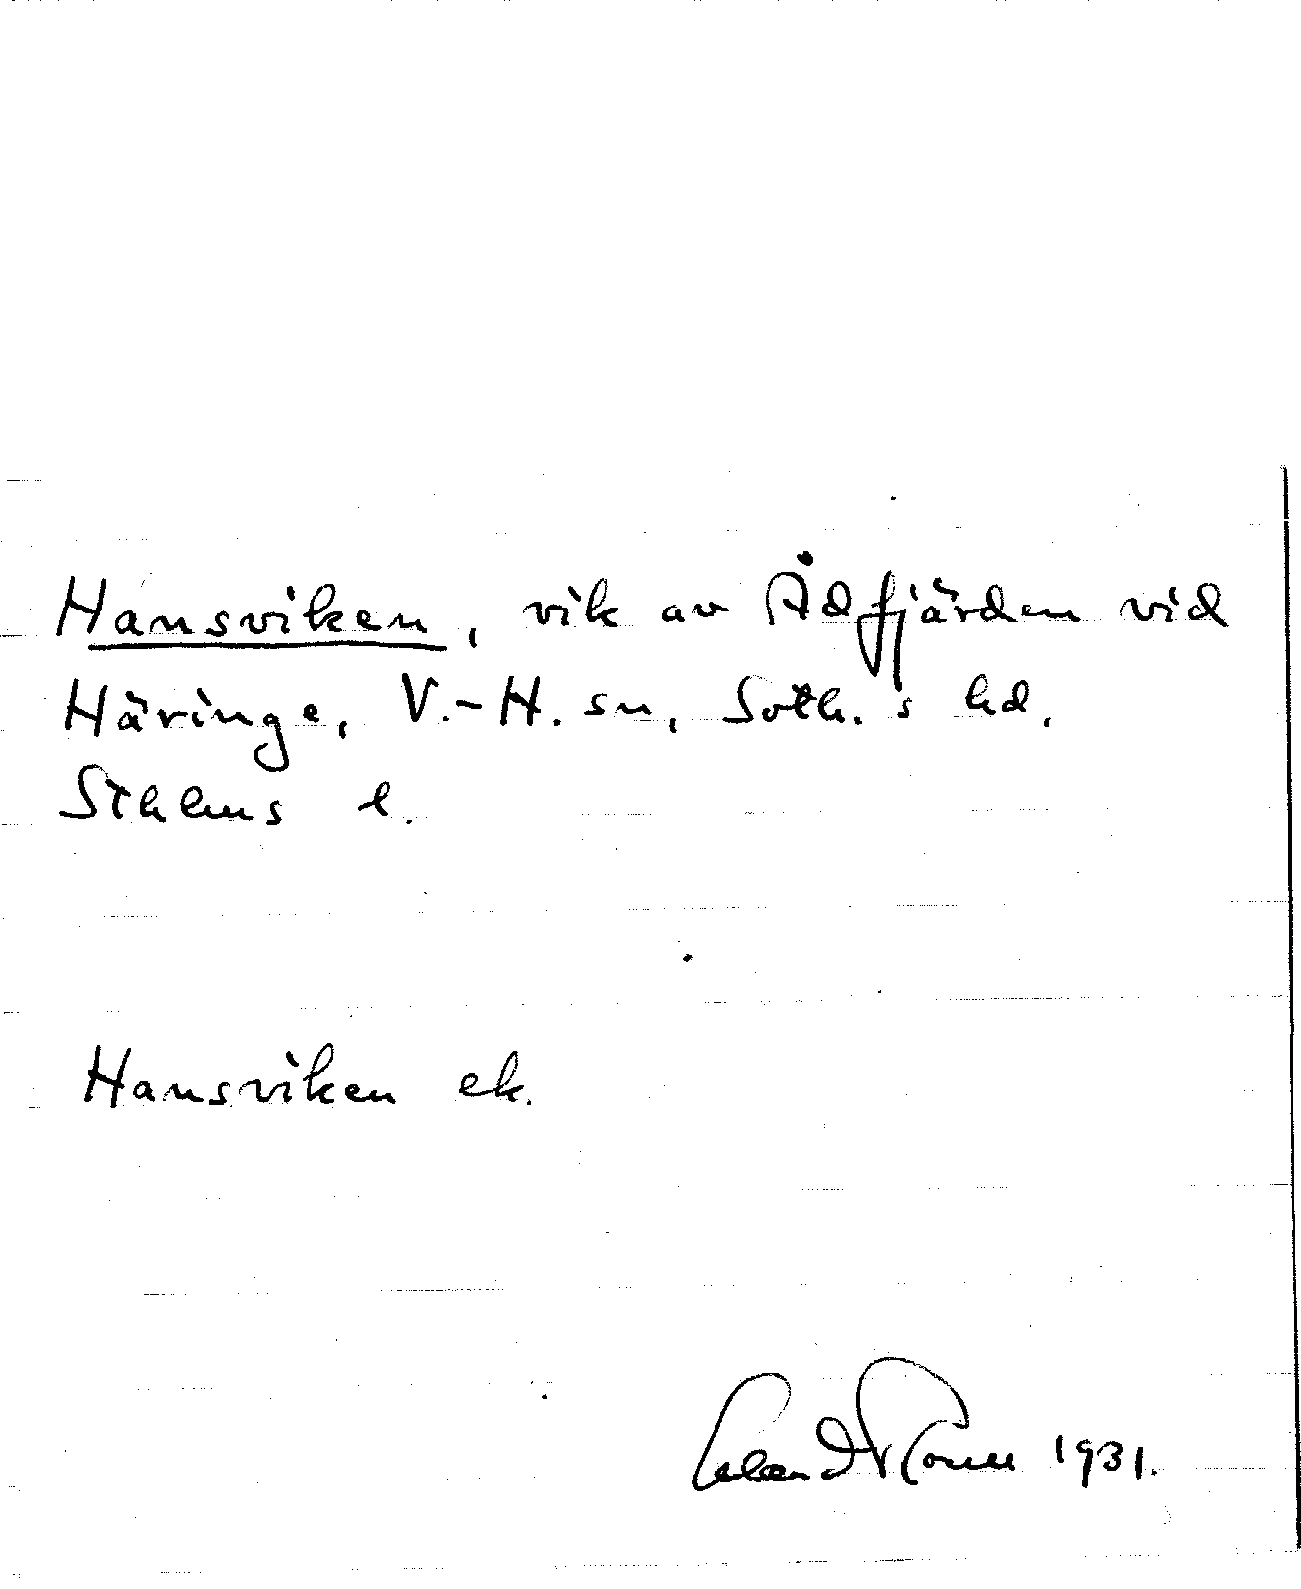 Hansviken, vik av Ådfjärden vid
Häringe, V.-H. sn, Soth.'s hd.
Sthlms l.
Hansviken ek.
1931.